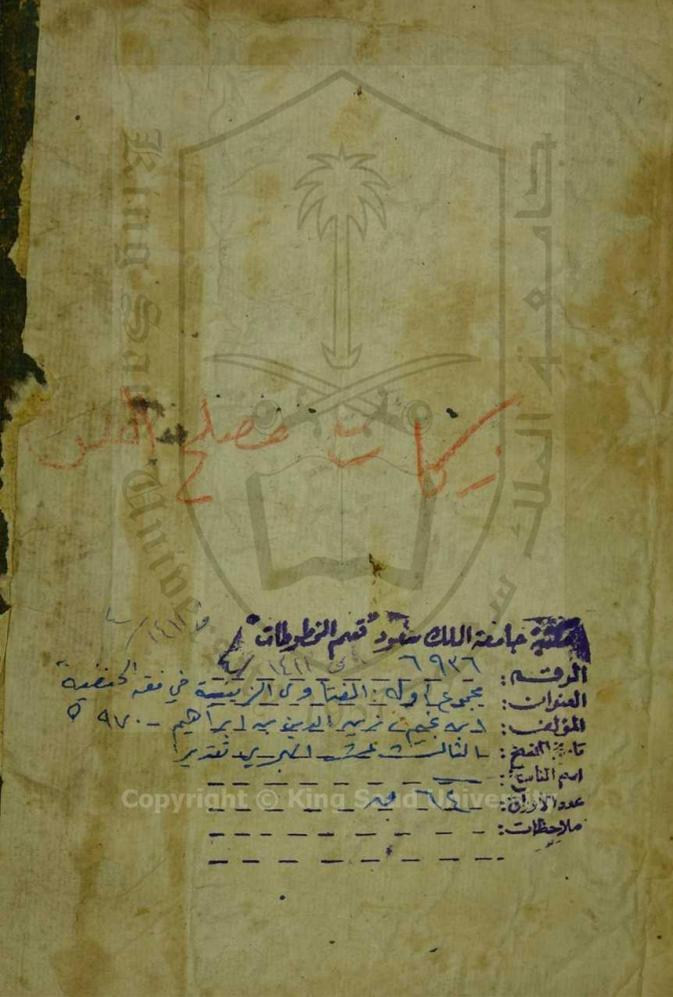 King Saud University
جامعة الملك سعود
مصلح
مكتبة جامعة الملك سعود "قسم المخطوطات"
الرقم: ٦٩٣٦
العنوان: مجموع أوله: الفتاوى الزينية في فقه الحنفية
المؤلف: ابن نجيم، زين الدين بن ابراهيم - ٩٧٠ ه
تاريخ النسخ: الثالث عشر الهجري تقديرا
اسم الناسخ:
عدد الأوراق: ٦٤
ملاحظات:
Copyright © King Saud University